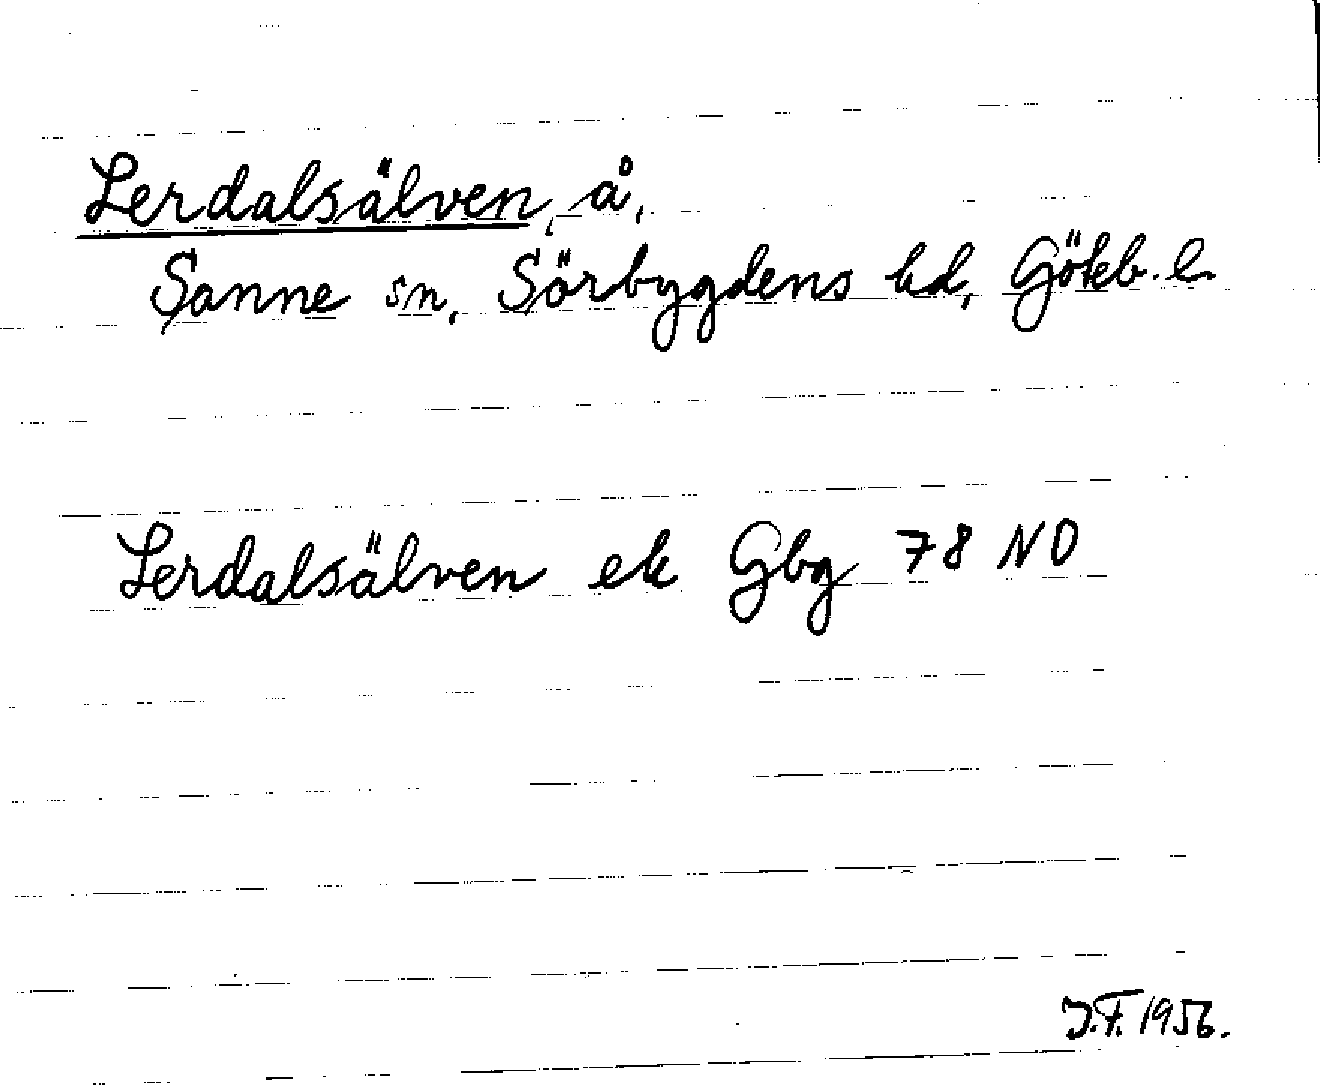 Lerdalsälven, å,
Sanne sn, Sörbygdens hd, Göteb. l.
Lerdalsälven ek Gbg 78 NO
J.F. 1956.